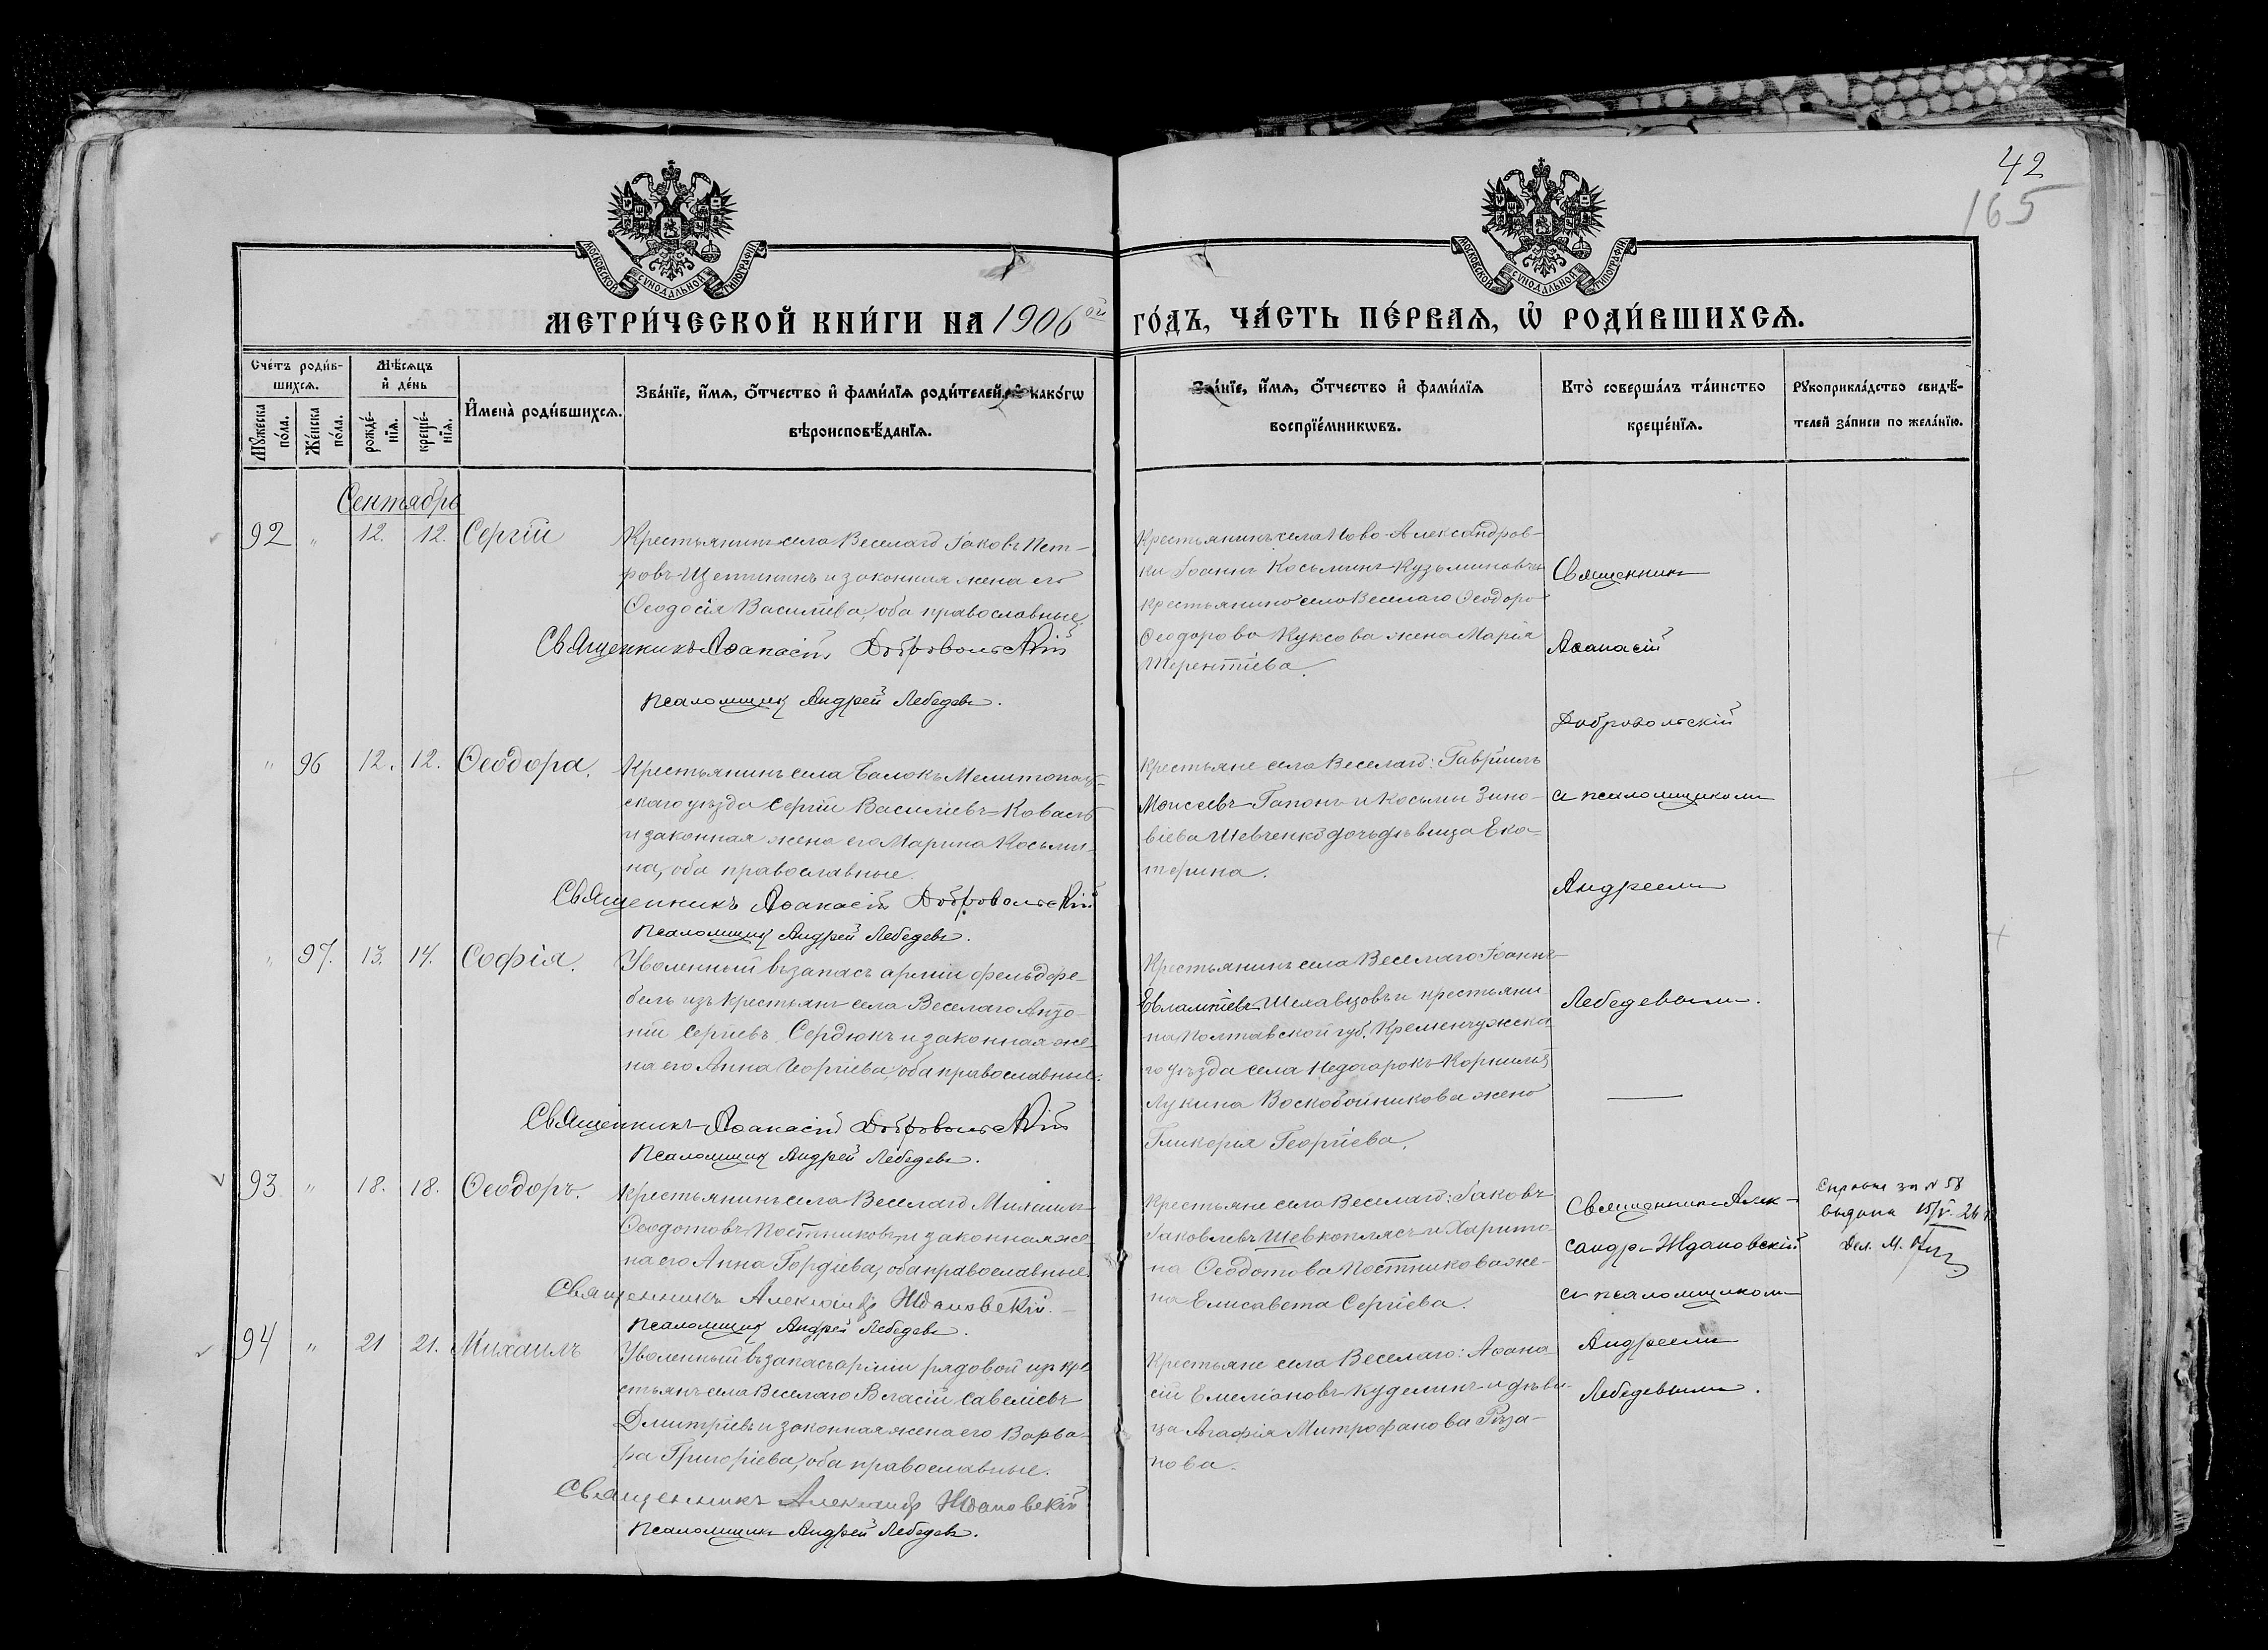 42
165
МОСКОВСКОЙ СѴНОДАЛЬНОЙ ТИПОГРАФІИ
МОСКОВСКОЙ СѴНОДАЛЬНОЙ ТИПОГРАФІИ
МЕТРИ́ЧЕСКОЙ КНИ́ГИ НА 1906ой ГО́ДЪ, ЧА́СТЬ ПЕ́РВАѦ, Ѡ҆ РОДИ́ВШИХСѦ.
Сче́тъ роди́в-
шихсѧ.
Мꙋ́жеска по́ла.
Же́нска по́ла.
Мѣ́сѧцъ
и҆ де́нь
рожде́-
нїѧ.
креще́-
нїѧ.
И҆мена̀ роди́вшихсѧ.
Зва́нїе, и҆́мѧ, ѻ҆́тчество и҆ фами́лїѧ роди́телей, и҆ како́гѡ
вѣроисповѣ́данїѧ.
Зва́нїе, и҆́мѧ, ѻ҆́тчество и҆ фами́лїѧ
воспрїе́мникѡвъ.
Кто̀ соверша́лъ та́инство
креще́нїѧ.
Рꙋкоприкла́дство свидѣ́-
телей за́писи по жела́нїю.
Сентябрь
92 " 12. 12. Сергій
Крестьянинъ села Веселаго Іаковъ Пет-
ровъ Щетининъ и законная жена его
Ѳеодосія Василіева, оба православные.
Священникъ Аѳанасій Добровольскій
Псаломщикъ Андрей Лебедевъ.
Крестьянинъ села Ново-Александров-
ки Іоаннъ Косьминъ Кузьминовъ и
крестьянина села Веселаго Ѳеодора
Ѳеодорова Куксова жена Марія
Терентіева.
Священникъ
Аѳанасій
Добровольскій
съ псаломщикомъ
Андреемъ
Лебедевымъ.
" 96 12. 12. Ѳеодора.
Крестьянинъ села Балокъ Мелитополь-
скаго уѣзда Сергій Василіевъ Коваль
и законная жена его Марина Косьми-
на, оба православные.
Священникъ Аѳанасій Добровольскій
Псаломщикъ Андрей Лебедевъ.
Крестьяне села Веселаго: Гавріилъ
Моисеевъ Гапонъ и Косьмы Зино-
віева Шевченко дочь дѣвица Ека-
терина.
" 97. 13. 14. Софія.
Уволенный въ запасъ арміи фельдфе-
бель изъ крестьянъ села Веселаго Анто-
ній Сергіевъ Сердюкъ и законная же-
на его Анна Георгіева, оба православные.
Священникъ Аѳанасій Добровольскій
Псаломщикъ Андрей Лебедевъ.
Крестьянинъ села Веселаго Іоаннъ
Евлампіевъ Шелавцовъ и крестьяни-
на Полтавской губ. Кременчужска-
го уѣзда села Недогарокъ Корнилія
Лукина Воскобойникова жена
Гликерія Георгіева.
93 " 18. 18. Ѳеодоръ.
Крестьянинъ села Веселаго Михаилъ
Ѳеодотовъ Постниковъ и законная же-
на его Анна Гордіева, оба православные.
Священникъ Александръ Ждановскій.
Псаломщикъ Андрей Лебедевъ.
Крестьяне села Веселаго: Іаковъ
Іаковлевъ Шевкоплясъ и Харито-
на Ѳеодотова Постникова же-
на Елисавета Сергіева.
Священникъ Алек-
сандръ Ждановскій
съ псаломщикомъ
Андреемъ
Лебедевымъ.
Справка за № 58
выдана 15/V 26
Дел. М.
94 " 21 21. Михаилъ
Уволенный въ запасъ арміи рядовой из кре-
стьянъ села Веселаго Власій Савеліевъ
Дмитріевъ и законная жена его Варва-
ра Григоріева, оба православные.
Священникъ Александръ Ждановскій
Псаломщикъ Андрей Лебедевъ.
Крестьяне села Веселаго: Аѳана-
сій Емеліановъ Куделинъ и дѣви-
ца Агафія Митрофанова Ряза-
нова.